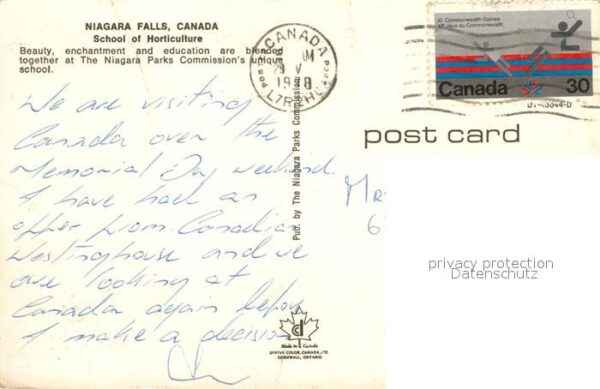 NIAGARA FALLS, CANADA
School of Horticulture
Beauty, enchantment and education are blended
together at The Niagara Parks Commission's unique
school.
We are visiting
Canada over the
Memorial Day weekend.
I have had an
offer from Canadian
Westinghouse and we
are looking at
Canada again before
I make a decision
Pub. by The Niagara Parks Commission
CANADA
XI Commonwealth Games
XIes Jeux du Commonwealth
Canada 30
DT-43344-D
post card
Mr
6
privacy protection
Datenschutz
Made in Canada
DEXTER COLOR, CANADA, LTD.
CORNWALL, ONTARIO